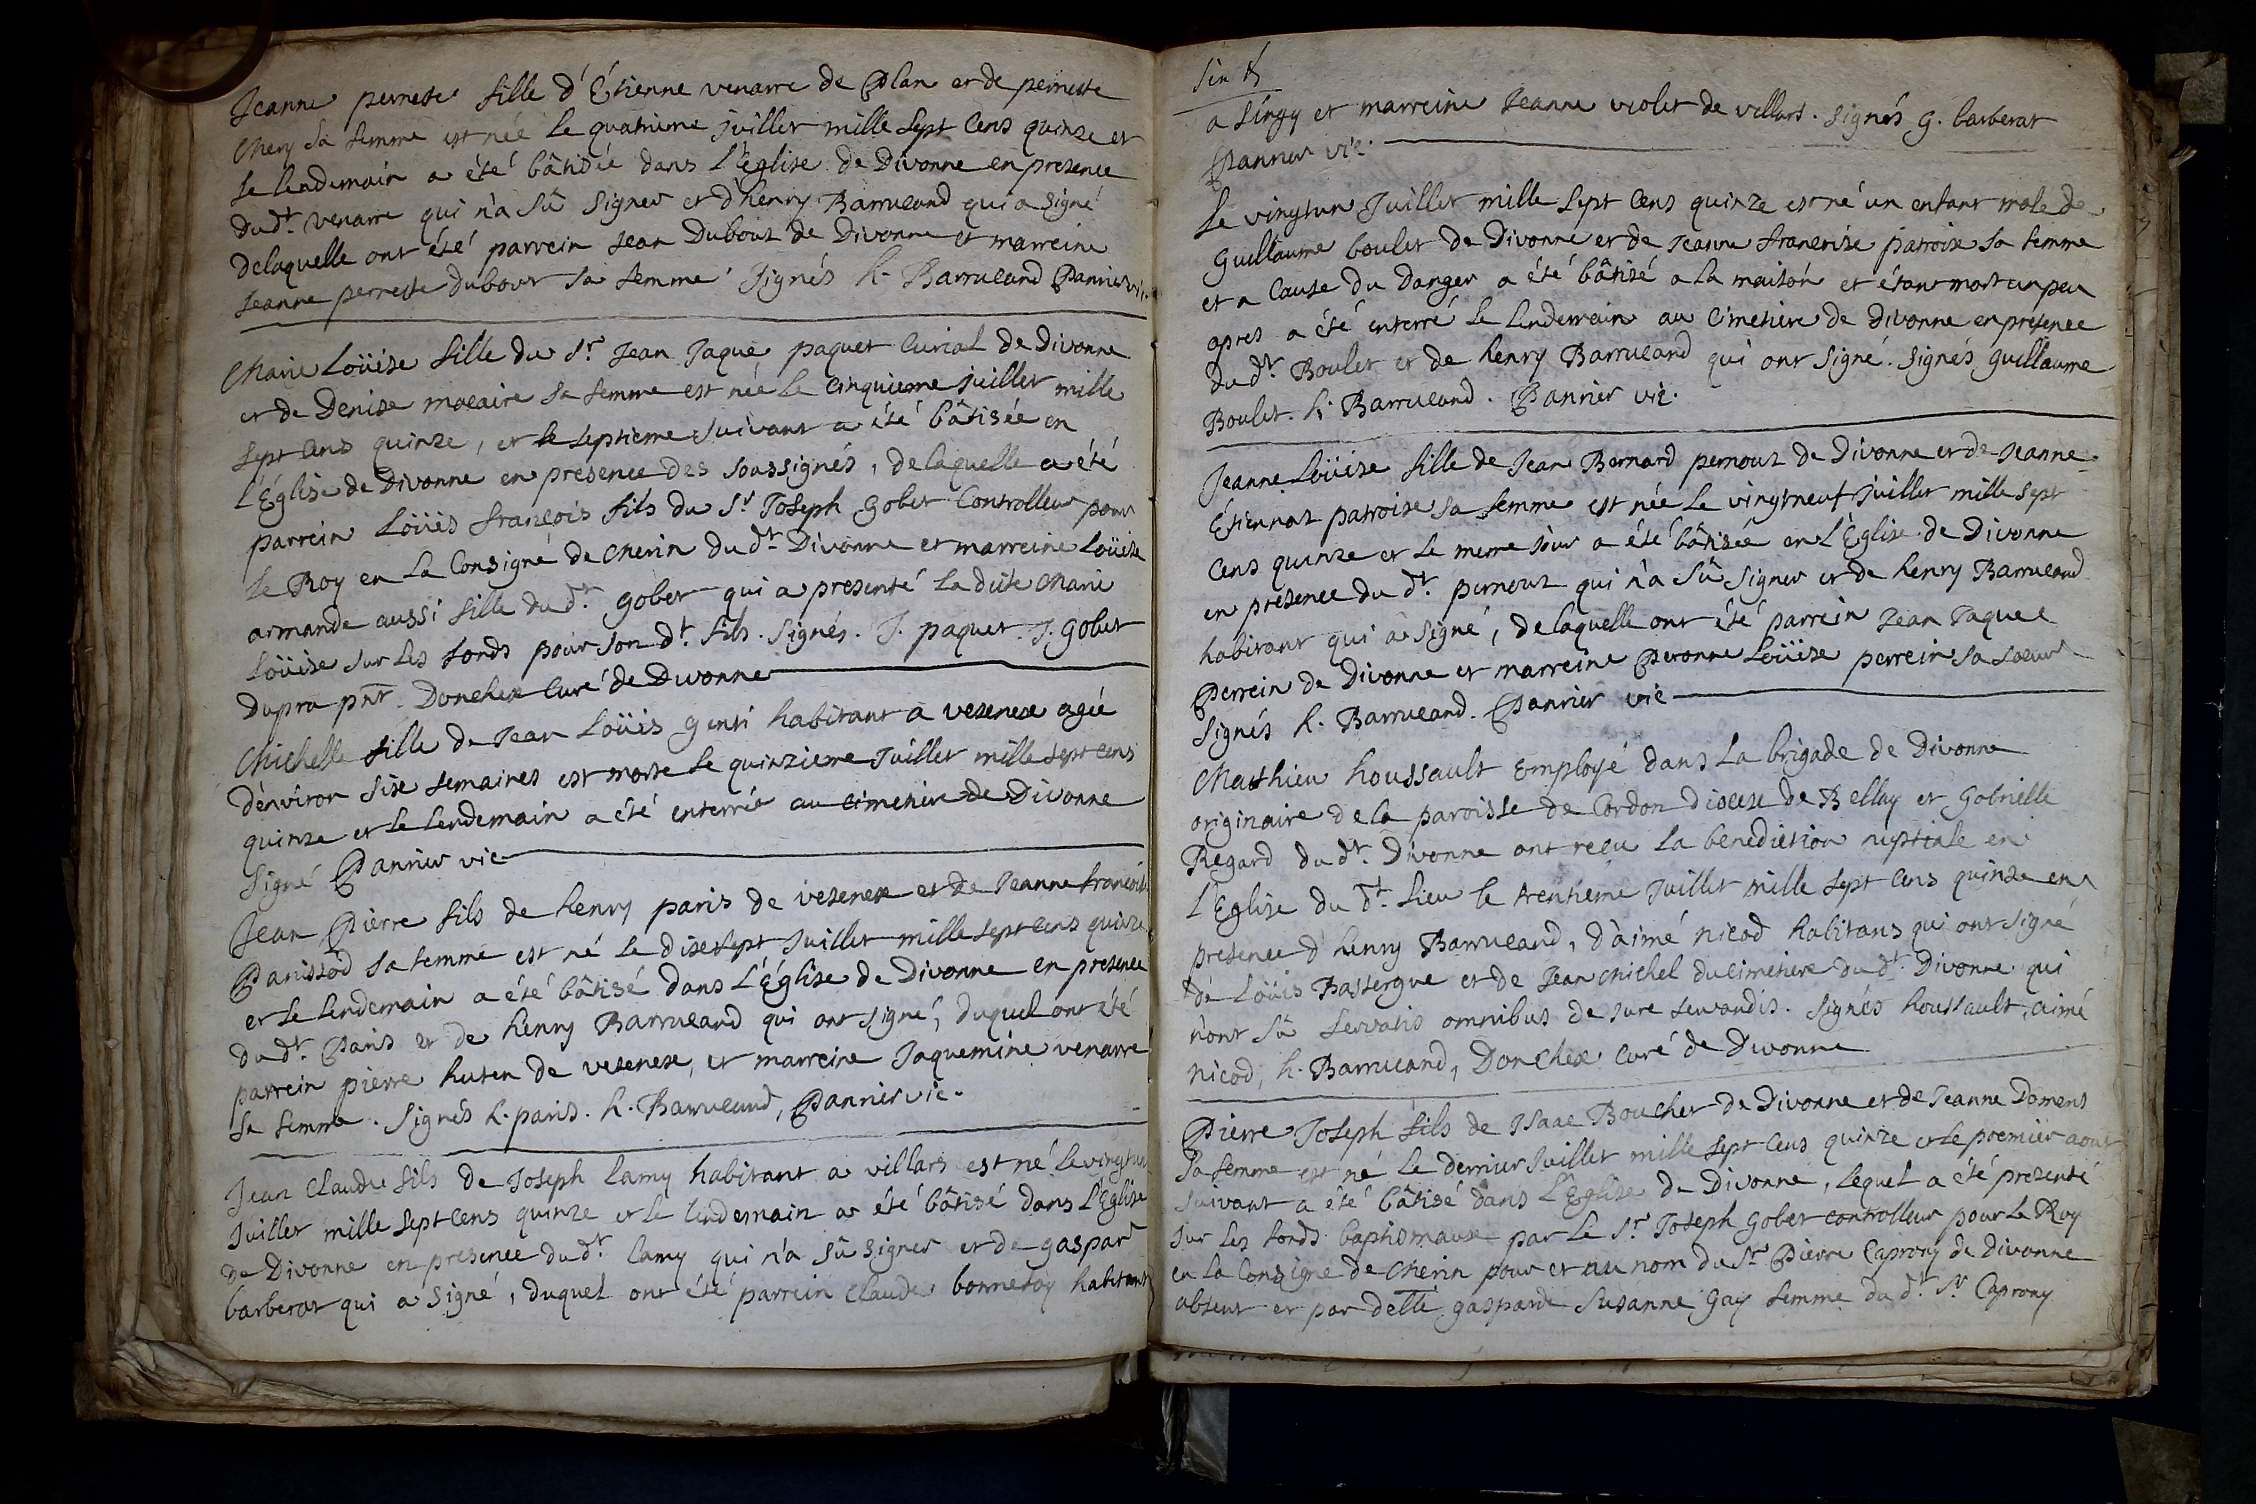 Jeanne pernette fille d'Étienne venarre de Plan et de pernette
Mery sa femme est née le quatrieme juillet mille sept cens quinze et
le lendemain a été bâtisée dans l'Église de Divonne en presence
du dt. venarre qui n'a sû signer et d'henry Barrucand qui a signé
delaquelle ont été parrein Jean Dubout de Divonne et marreine
Jeanne pernette dubout sa femme. Signés h. Barrucand Pannier vic.
Marie Loüise fille du Sr. Jean Jaque paquet Curial de Divonne
et de Denise macaire sa femme est née le cinquieme juillet mille
sept cens quinze, et le septieme suivant a été bâtisée en
l'Église de Divonne en presence des soussignés, delaquelle a été
parrein Loüis françois fils du Sr. Joseph gobet Controlleur pour
le Roy en la Consigne de cherin du dt. Divonne et marreine Loüise
armande aussi fille du dt. gobet qui a presenté la dite Marie
Loüise sur les fonds pour son dt. fils. Signés. J. paquet. J. Gobet
Dupra pnt. Donchex curé de Divonne
Michelle fille de Jean Loüis genti habitant a vesenex agée
d'environ six semaines est morte le quinzieme Juillet mille sept cens
quinze et le lendemain a été enterrée au cimetiere de Divonne
Signé Pannier vic
Jean Pierre fils de henry paris de vesenex et de Jeanne françoise
Panissod sa femme est né le dixesept Juillet mille sept cens quinze
et le lendemain a été bâtisé dans l'Église de Divonne en presence
du dt. Paris et de henry Barrucand qui ont signé, duquel ont été
parrein pierre huten de vesenex, et marreine Jaquemine venarre
sa femme. Signés h. paris. h. Barrucand, Pannier vic.
Jean Claude fils de Joseph lamy habitant a villars est né le vingtun
Juillet mille sept cens quinze et le lendemain a été bâtisé dans l'Eglise
de Divonne en presence du dt. lamy qui n'a sû signer et de gaspar
barberat qui a signé, duquel ont été parrein Claude bonnefoy habitant
a singy et marreine Jeanne violet de villars. Signés g. barberat
Pannier vic.
Le vingtun Juillet mille sept cens quinze est né un enfant male de
Guillaume boulet de Divonne et de Jeanne françoise patroix sa femme
et a cause du danger a été bâtisé a la maison et étant mort un peu
apres a été enterré le lendemain au cimetiere de divonne en presence
du dt. Boulet et de henry Barrucand qui ont signé. Signés guillaume
Boulet. h. Barrucand. Pannier vic.
Jeanne Loüise fille de Jean Bernard pernout de Divonne et de Jeanne
Étiennaz patroixe sa femme est née le vingtneuf juillet mille sept
cens quinze et le meme jour a été bâtisée en l'Église de Divonne
en presence du dt. pernout qui n'a sû signer et de henry Barrucand
habitant qui a signé, delaquelle ont été parrein Jean Jaque
Perrein de Divonne et marreine Peronne Loüise perrein sa soeur
Signés h. Barrucand. Pannier vic
Mathieu houssault Employé dans la brigade de Divonne
originaire de la paroisse de Cordon diocese de Bellay et Gabrielle
Regard du dt. Divonne ont reçu la benediction nuptiale en
l'Eglise du dt. Lieu le trentieme juillet mille sept cens quinze en
presence d'henry Barrucand, d'aimé nicod habitans qui ont signé
de Loüis Bassergue et de Jean Michel ducimetiere du dt. Divonne qui
n'ont sû servatis omnibus de jure servandis. Signés houssault, aimé
nicod, h. Barrucand, Donchex curé de Divonne
Pierre Joseph fils de Isaac Boucher de Divonne et de Jeanne Domens
sa femme est né le dernier juillet mille sept cens quinze et le premier aout
suivant a été bâtisé dans l'Église de Divonne, lequel a été presenté
sur les fonds baptismaux par le Sr. Joseph gobet controlleur pour le Roy
en la Consigne de cherin pour et au nom du Sr. Pierre Caprony de Divonne
absent et par delle gasparde Susanne Gay femme du dt. Sr. Caprony